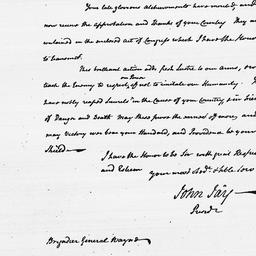 Your late glorious atchievements have merited and
now receive the approbation and thanks of your Country. They are
contained in the enclosed act of Congress which I have the Honor
to transmit.
This brilliant action adds fresh Lustre to our Arms, and
will teach the Enemy to respect, if not to imitate our Humanity. You
have nobly reaped Laurels in the Cause of your Country in Fields
of Danger and Death. May these prove the earnest of more, and
may Victory ever bear your Standard, and Providence be your
Shield—
I have the Honor to be Sir with great Respect
and Esteem
your most Obdt. & hble Serv
John Jay
Presidt
Brigadier General Wayne